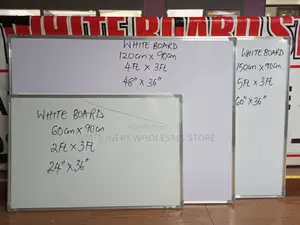 WHITE BOARD
WHITE BOARD
120cm x 90cm
4Ft x 3Ft
48" x 36"
WHITE BOARD
150cm x 90cm
5Ft x 3Ft
60" x 36"
WHITE BOARD
60cm x 90cm
2Ft x 3Ft
24" x 36"
STATIONERY WHOLESALE STORE